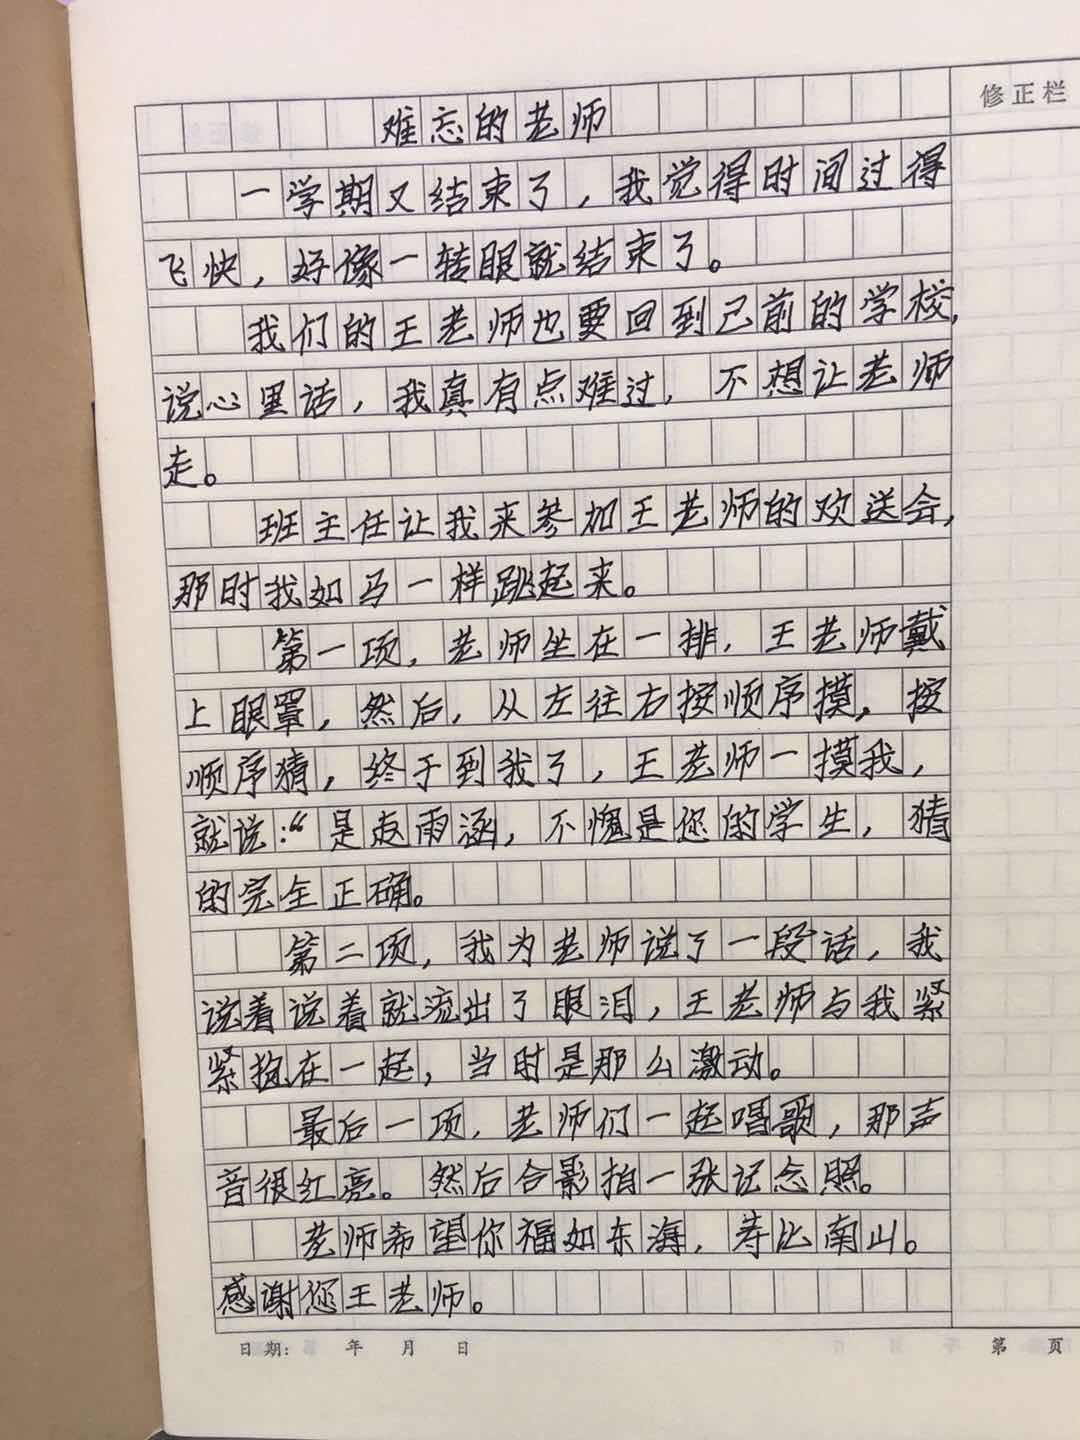 修正栏
难忘的老师
一学期又结束了，我觉得时间过得
飞快，好像一转眼就结束了。
我们的王老师也要回到己前的学校，
说心里话，我真有点难过，不想让老师
走。
班主任让我来参加王老师的欢送会，
那时我如马一样跳起来。
第一项，老师坐在一排，王老师戴
上眼罩，然后，从左往右按顺序摸，按
顺序猜，终于到我了，王老师一摸我，
就说：“是赵雨涵，不愧是您的学生，猜
的完全正确。
第二项，我为老师说了一段话，我
说着说着就流出了眼泪，王老师与我紧
紧抱在一起，当时是那么激动。
最后一项，老师们一起唱歌，那声
音很红亮。然后合影拍一张记念照。
老师希望你福如东海，寿比南山。
感谢您王老师。
日期： 年 月 日
第 页